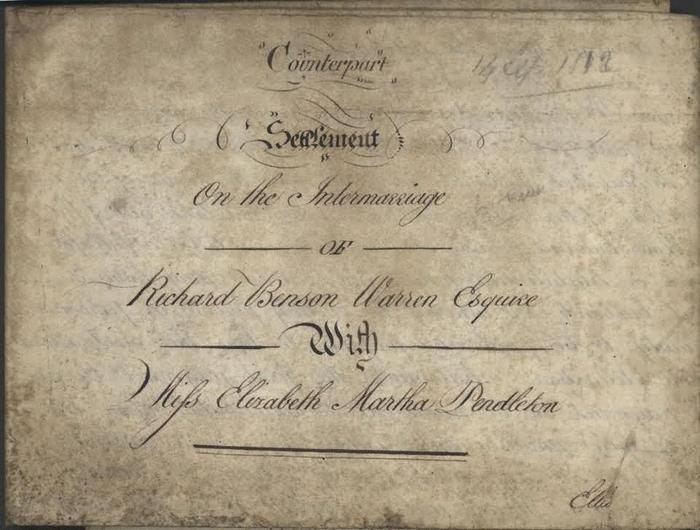 Counterpart
Settlement
On the Intermarriage
OF
Richard Benson Warren Esquire
With
Miſs Elizabeth Martha Pendleton